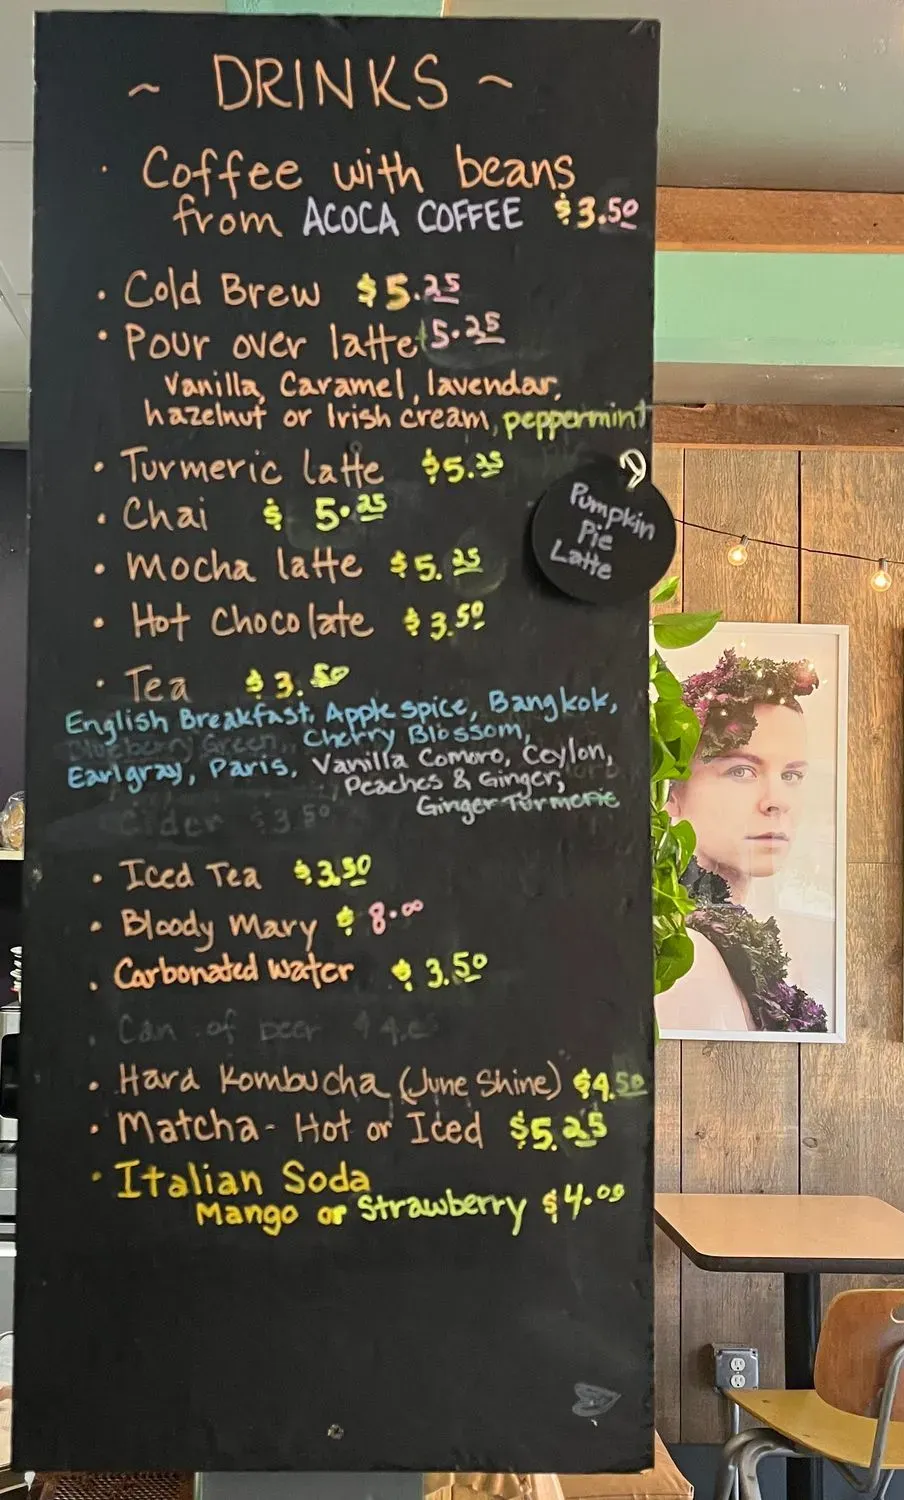 ~ DRINKS ~
· Coffee with beans
from ACOCA COFFEE $3.50
· Cold Brew $5.25
· Pour over latte 5.25
Vanilla, Caramel, lavendar,
hazelnut or Irish cream, peppermint
· Turmeric latte $5.25
· Chai $5.25
Pumpkin
Pie
Latte
· Mocha latte $5.25
· Hot Chocolate $3.50
· Tea $3.50
English Breakfast, Apple spice, Bangkok,
Blueberry Green, Cherry Blossom,
Earlgray, Paris, Vanilla Comoro, Ceylon,
Peaches & Ginger,
Ginger Turmeric
Cider $3.50
· Iced Tea $3.50
· Bloody Mary $8.00
· Carbonated water $3.50
· Can of beer
· Hard Kombucha (June Shine) $4.50
· Matcha - Hot or Iced $5.25
· Italian Soda
Mango or Strawberry $4.00